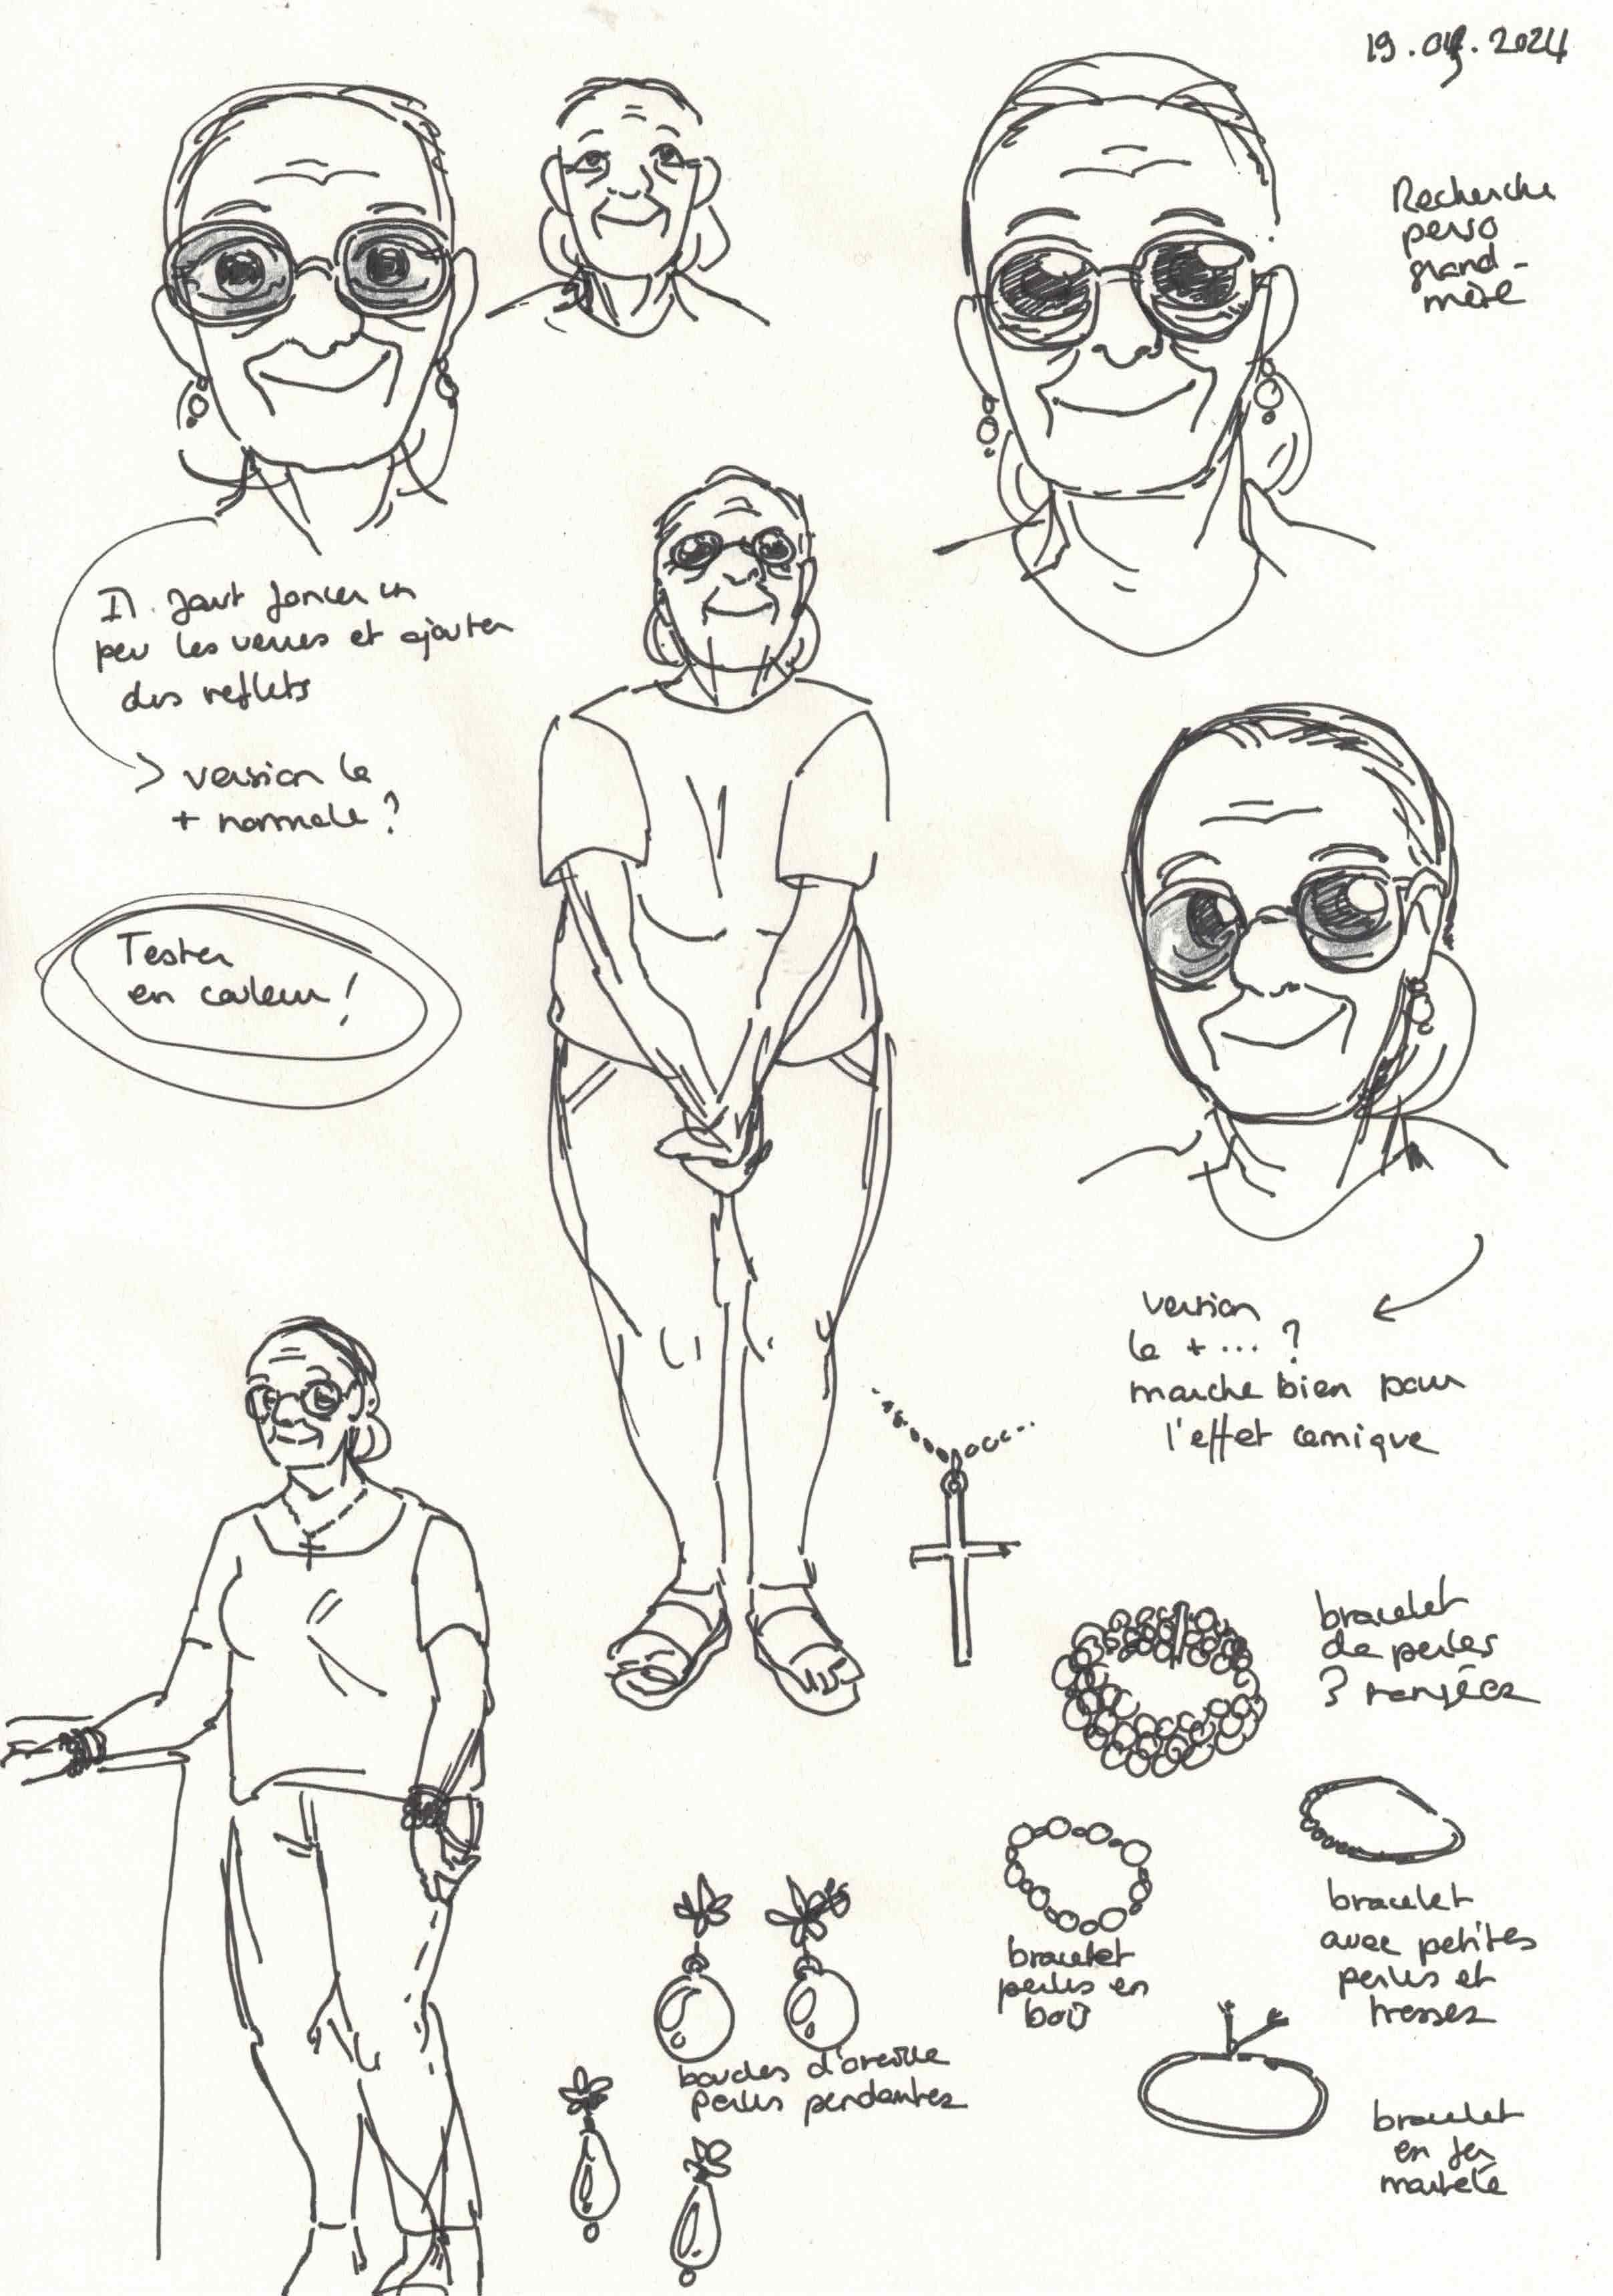 19.04.2024
Recherche
perso
grand-
mère
Il faut foncer un
peu les verres et ajouter
des reflets
> version la
+ normale ?
Tester
en couleur !
version
la + ... ?
marche bien pour
l'effet comique
bracelet
de perles
3 rangées
bracelet
perles en
bois
bracelet
avec petites
perles et
tresses
boucles d'oreille
perles pendantes
bracelet
en fer
martelé